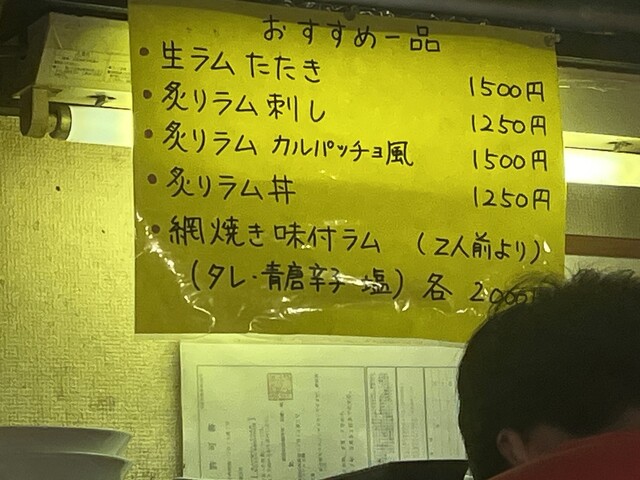 おすすめ一品
・生ラムたたき 1500円
・炙りラム刺し 1250円
・炙りラム カルパッチョ風 1500円
・炙りラム丼 1250円
・網焼き味付ラム (2人前より)
(タレ・青唐辛子 塩) 各 2000円
許可書